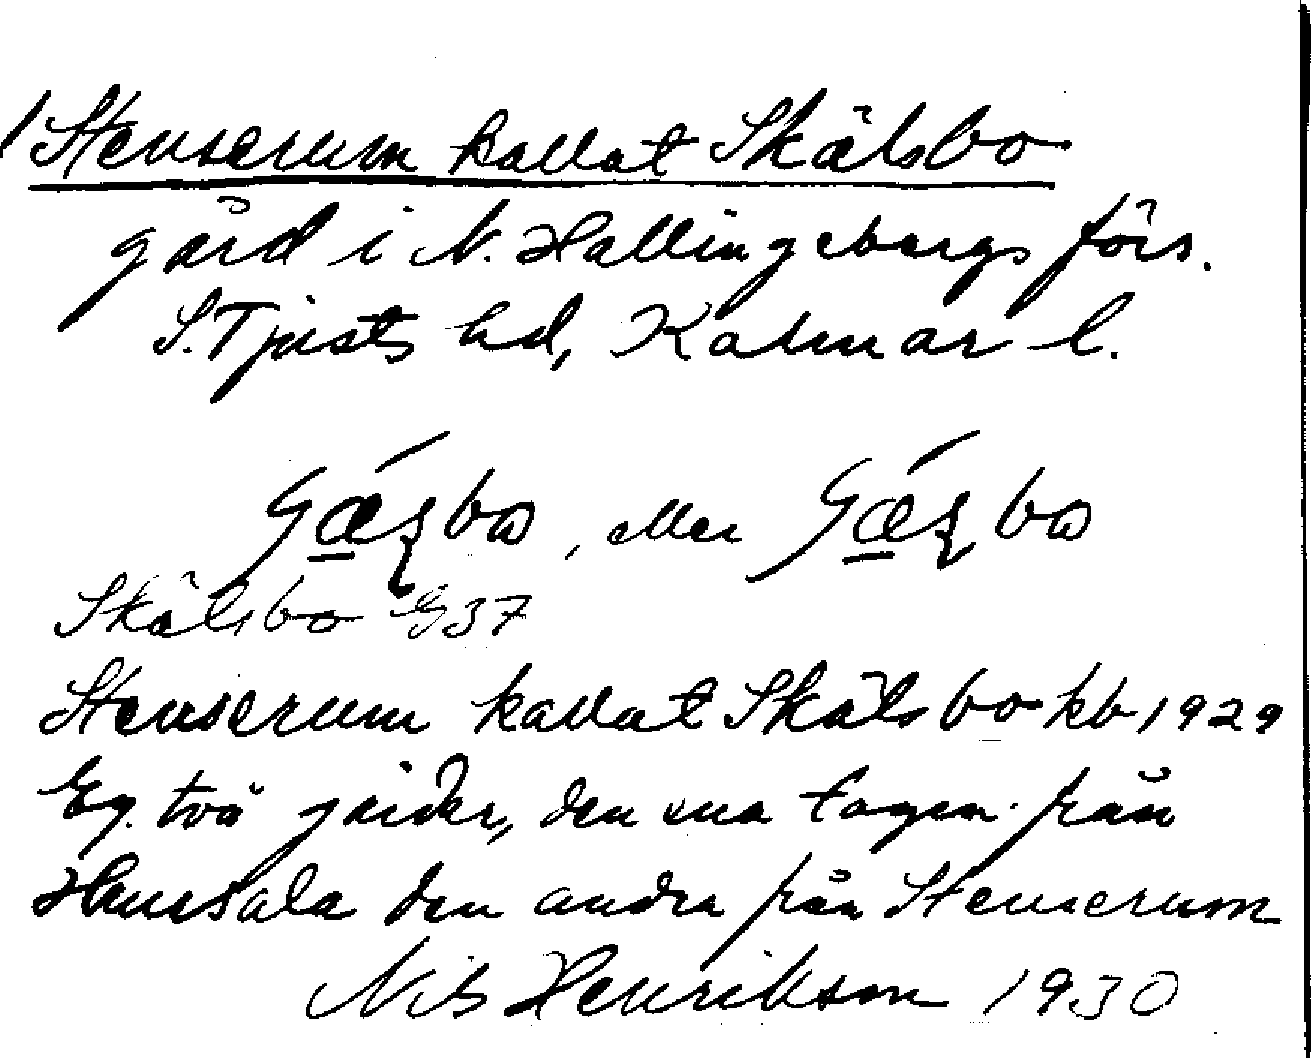 Stenserum kallat Skälsbo
gård i N. Hallingebergs förs.
S. Tjusts hd, Kalmar l.
eller
Skälsbo G 37
Stenserum kallat Skälsbo kb 1929
Eg. två gårdar, den ena tagen från
den andra från Stenserum
Nils Henrikson 1930